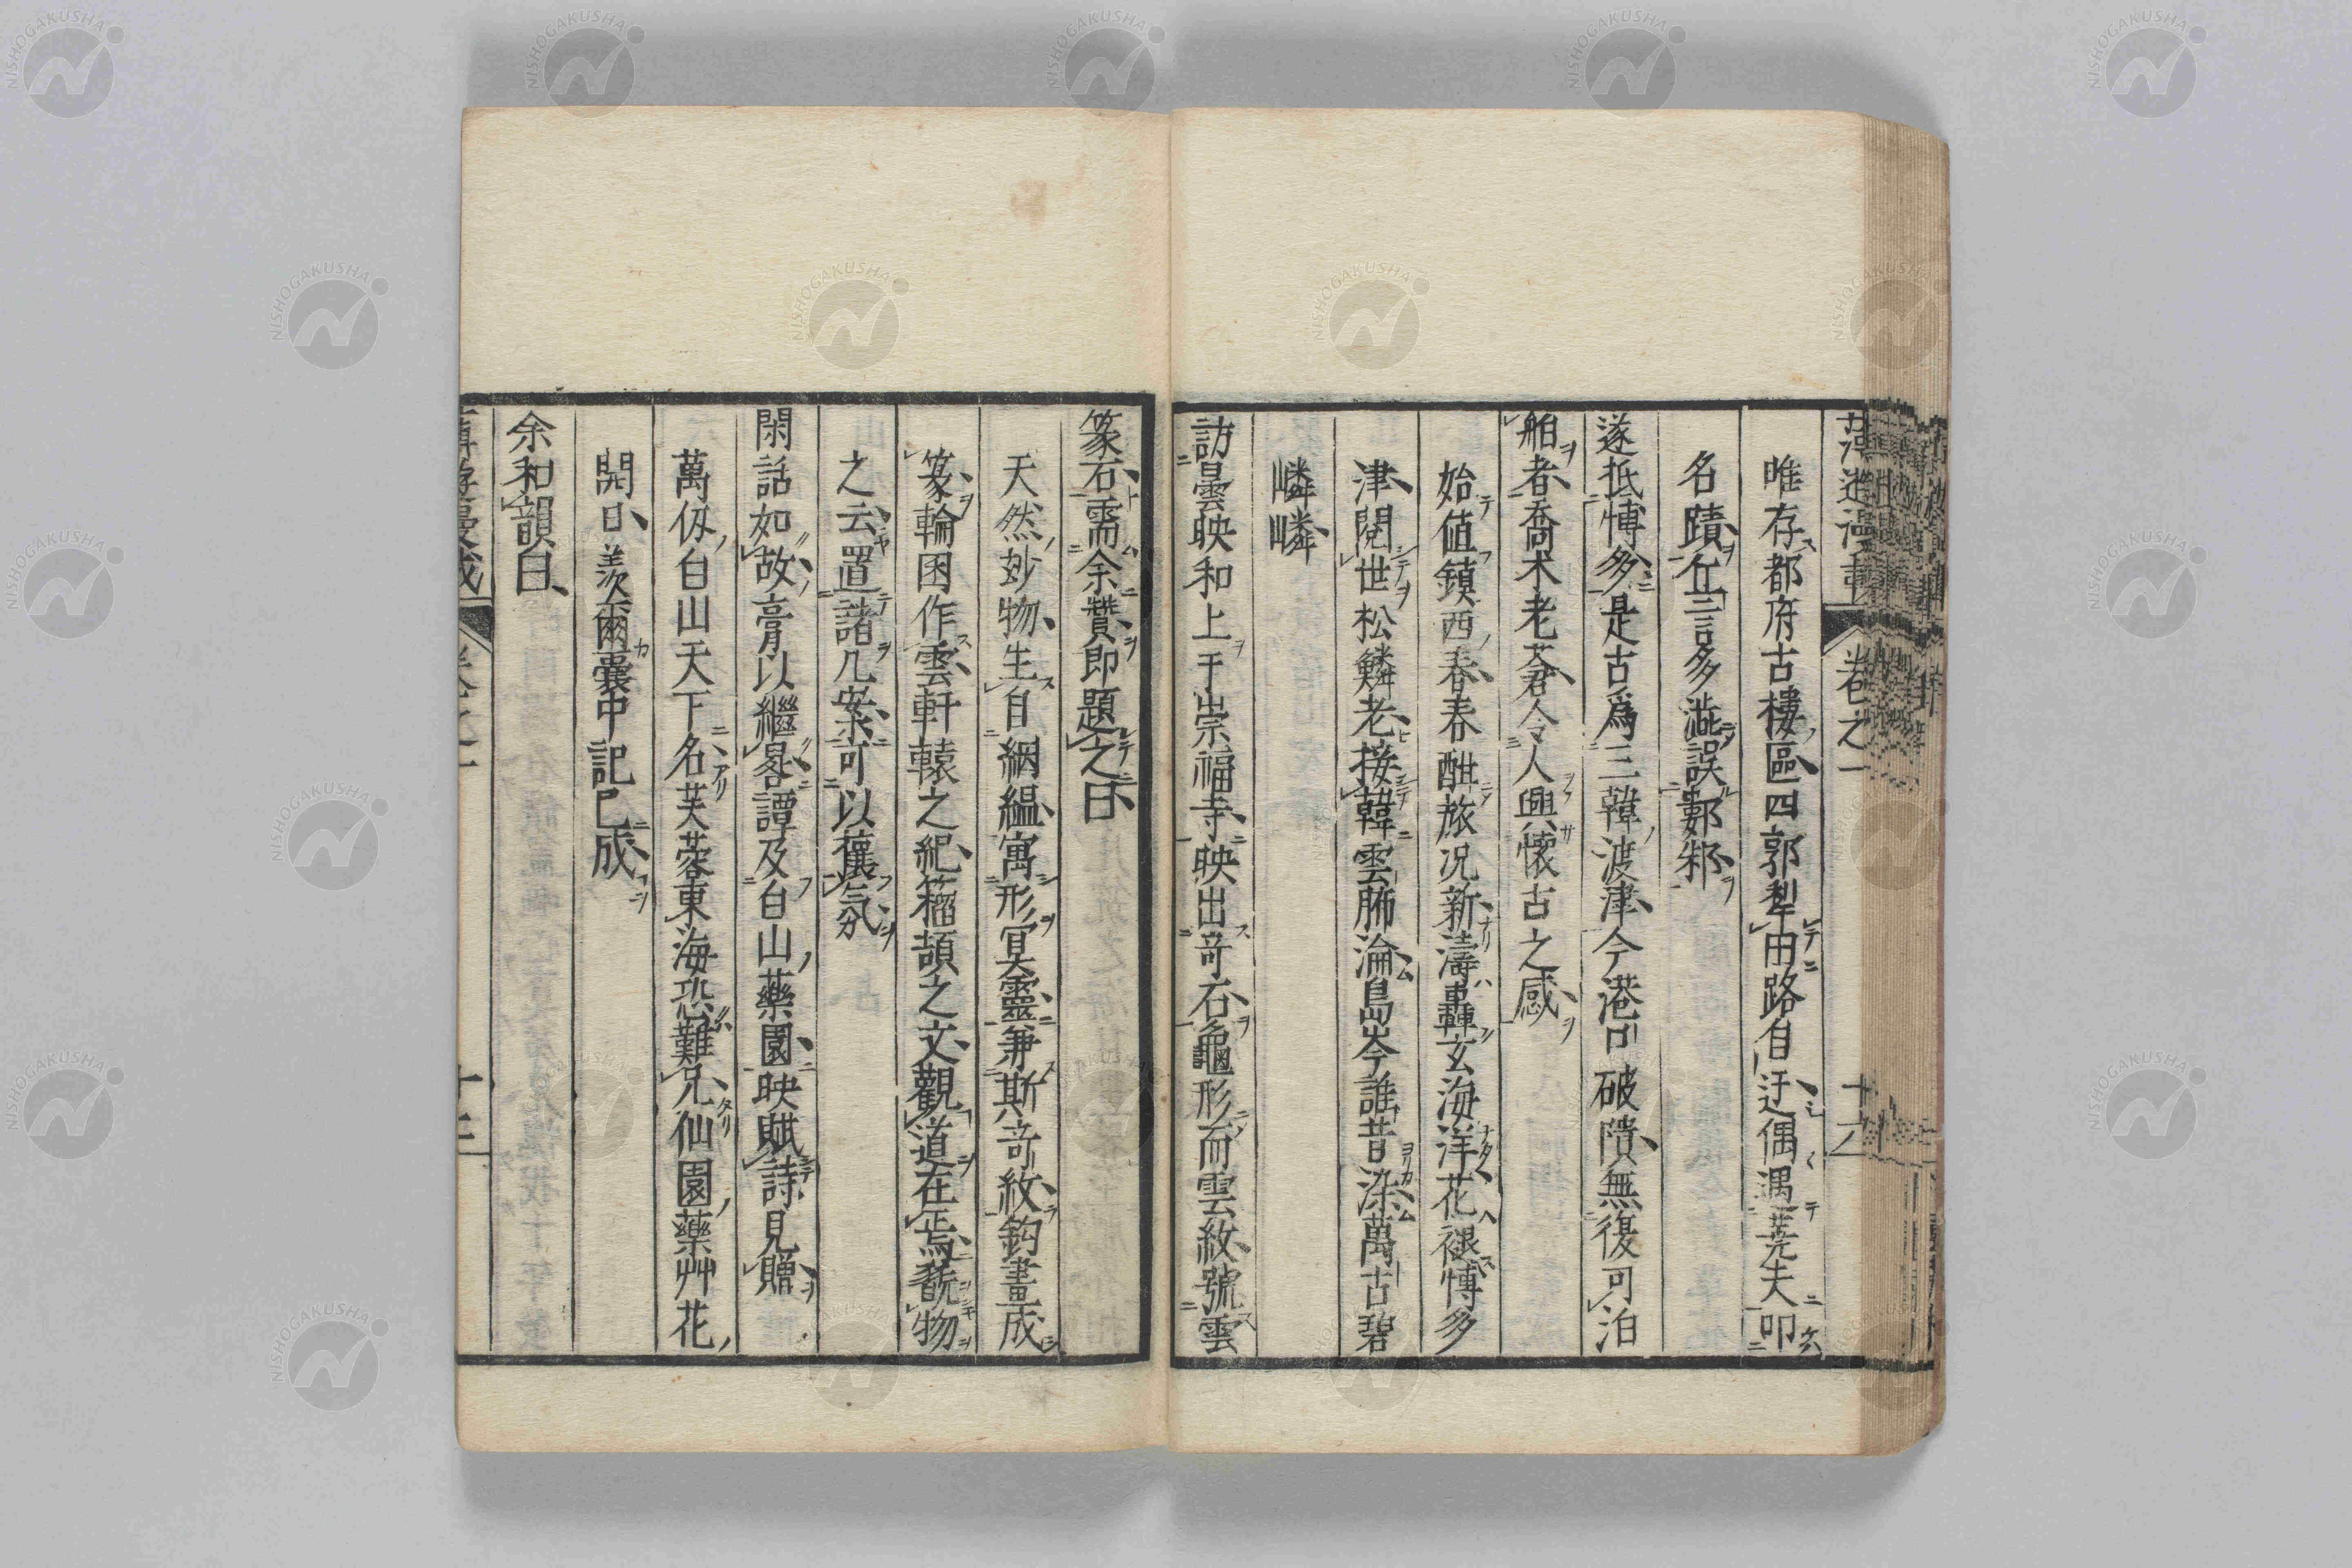 唯存都府古樓區四郭犁田路自迂偶遇荒夫叩
名蹟在言多澁誤鄭邾
遂抵博多是古爲三韓渡津今港口破隤無復可泊
舶者喬木老蒼令人興懷古之感
始値鎮西春春酣旅况新濤轟玄海洋花褪博多
津閲世松鱗老接韓雲腑淪島岑誰昔染萬古碧
嶙嶙
訪曇映和上于崇福寺映出奇石龜形而雲紋號雲
篆石需余贊即題之曰
天然妙物生自絪縕寓形冥靈筭斯奇紋鈎畫成
篆輪囷作雲軒轅之紀籀頡之文觀道在焉翫物
之云置諸几案可以穰氛
閑話如故膏以繼晷譚及白山藥園映賦詩見贈
萬仭白山天下名芙蓉東海恐難兄仙園藥艸花
開日羨爾囊中記已成
余和韻曰
卷之一
NISHOGAKUSHA